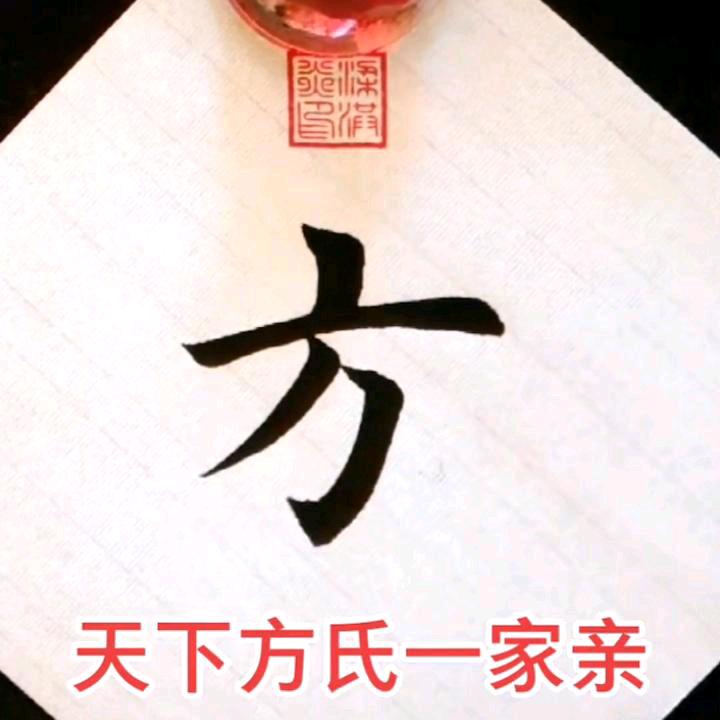 方
天下方氏一家亲